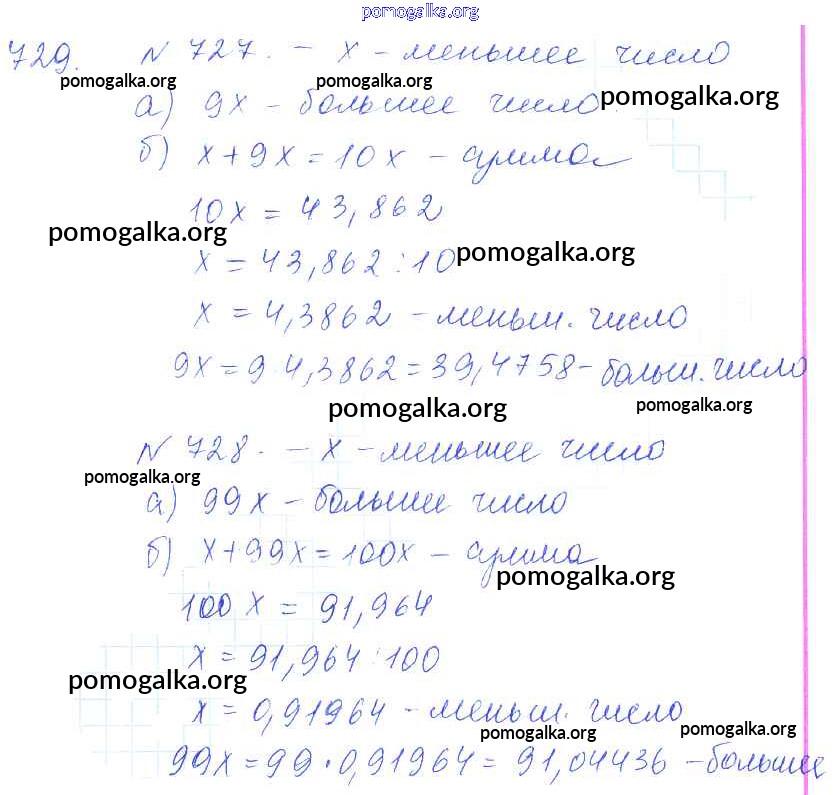 pomogalka.org
729. N 727. – x – меньшее число
pomogalka.org pomogalka.org
а) 9x – большее число. pomogalka.org
б) x + 9x = 10x – сумма
10x = 43,862
pomogalka.org
x = 43,862 : 10 pomogalka.org
x = 4,3862 – меньш. число
9x = 9·4,3862 = 39,4758 – больш. число
pomogalka.org pomogalka.org
N 728. – x – меньшее число
pomogalka.org
а) 99x – большее число
б) x + 99x = 100x – сумма
pomogalka.org
100x = 91,964
x = 91,964 : 100
pomogalka.org
x = 0,91964 – меньш. число
pomogalka.org pomogalka.org
99x = 99·0,91964 = 91,04436 – большее